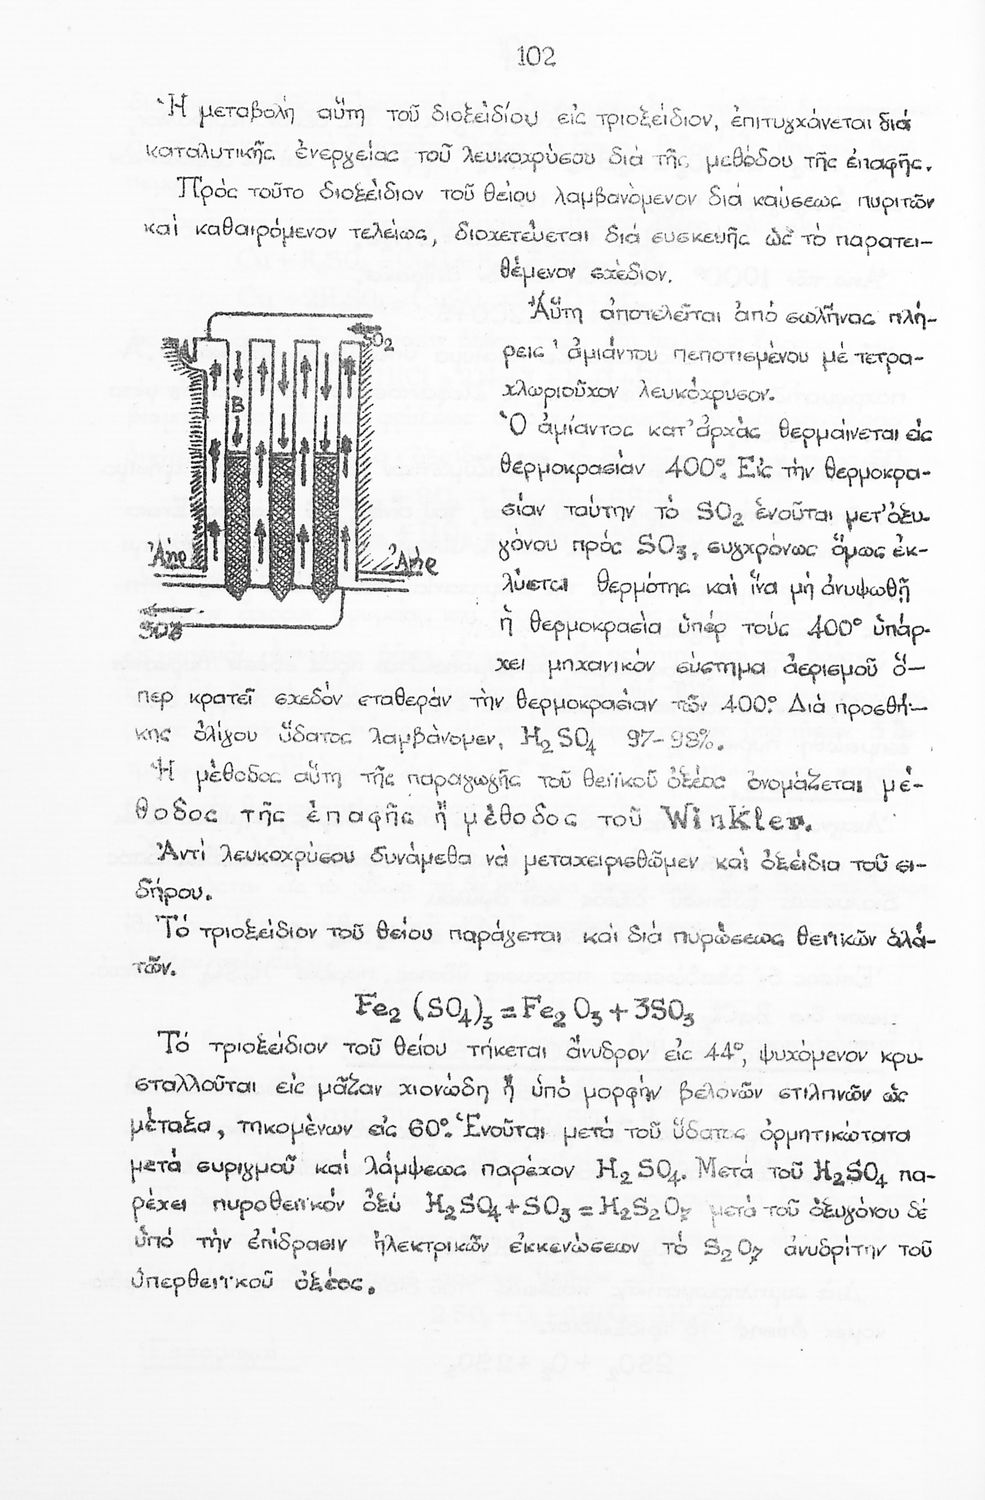 102
Ἡ μεταβολή αὕτη τοῦ διοξειδίου εἰς τριοξείδιον, ἐπιτυγχάνεται διά
καταλυτικῆς ἐνεργείας τοῦ λευκοχρύσου διά τῆς μεθόδου τῆς ἐπαφῆς.
Πρός τοῦτο διοξείδιον τοῦ θείου λαμβανόμενον διά καύσεως πυριτῶν
καί καθαιρόμενον τελείως, διοχετεύεται διά συσκευῆς ὡς τό παρατει-
θέμενον σχέδιον.
Αὕτη ἀποτελεῖται ἀπό σωλῆνας πλή-
ρεις ἀμιάντου πεποτισμένου μέ τετρα-
χλωριοῦχον λευκόχρυσον.
Ὁ ἀμίαντος κατ' ἀρχάς θερμαίνεται εἰς
θερμοκρασίαν 400°. Εἰς τήν θερμοκρα-
σίαν ταύτην τό SO2 ἑνοῦται μετ' ὀξυ-
γόνου πρός SO3, συγχρόνως ὅμως ἐκ-
λύεται θερμότης καί ἵνα μή ἀνυψωθῇ
ἡ θερμοκρασία ὑπέρ τούς 400° ὑπάρ-
χει μηχανικόν σύστημα ἀερισμοῦ ὅ-
περ κρατεῖ σχεδόν σταθεράν τήν θερμοκρασίαν τῶν 400°. Διά προσθή-
κης ὀλίγου ὕδατος λαμβάνομεν, H2SO4 97-98%.
Ἡ μέθοδος αὕτη τῆς παραγωγῆς τοῦ θειϊκοῦ ὀξέος ὀνομάζεται μέ-
θοδος τῆς ἐπαφῆς ἤ μέθοδος τοῦ Winkler.
Ἀντί λευκοχρύσου δυνάμεθα νά μεταχειρισθῶμεν καί ὀξείδια τοῦ σι-
δήρου.
Τό τριοξείδιον τοῦ θείου παράγεται καί διά πυρώσεως θειϊκῶν ἁλά-
των.
Fe2 (SO4)3 = Fe2 O3 + 3SO3
Τό τριοξείδιον τοῦ θείου τήκεται ἄνυδρον εἰς 44°, ψυχόμενον κρυ-
σταλλοῦται εἰς μᾶζαν χιονώδη ἤ ὑπό μορφήν βελονῶν στιλπνῶν ὡς
μέταξα, τηκομένων εἰς 60°. Ἑνοῦται μετά τοῦ ὕδατος ὁρμητικώτατα
μετά συριγμοῦ καί λάμψεως παρέχον H2 SO4. Μετά τοῦ H2SO4 πα-
ρέχει πυροθειϊκόν ὀξύ H2SO4+SO3=H2S2O7 μετά τοῦ ὀξυγόνου δέ
ὑπό τήν ἐπίδρασιν ἠλεκτρικῶν ἐκκενώσεων τό S2O7 ἀνυδρίτην τοῦ
ὑπερθειϊκοῦ ὀξέος.
SO2
B
Ἀήρ
Ἀήρ
SO3